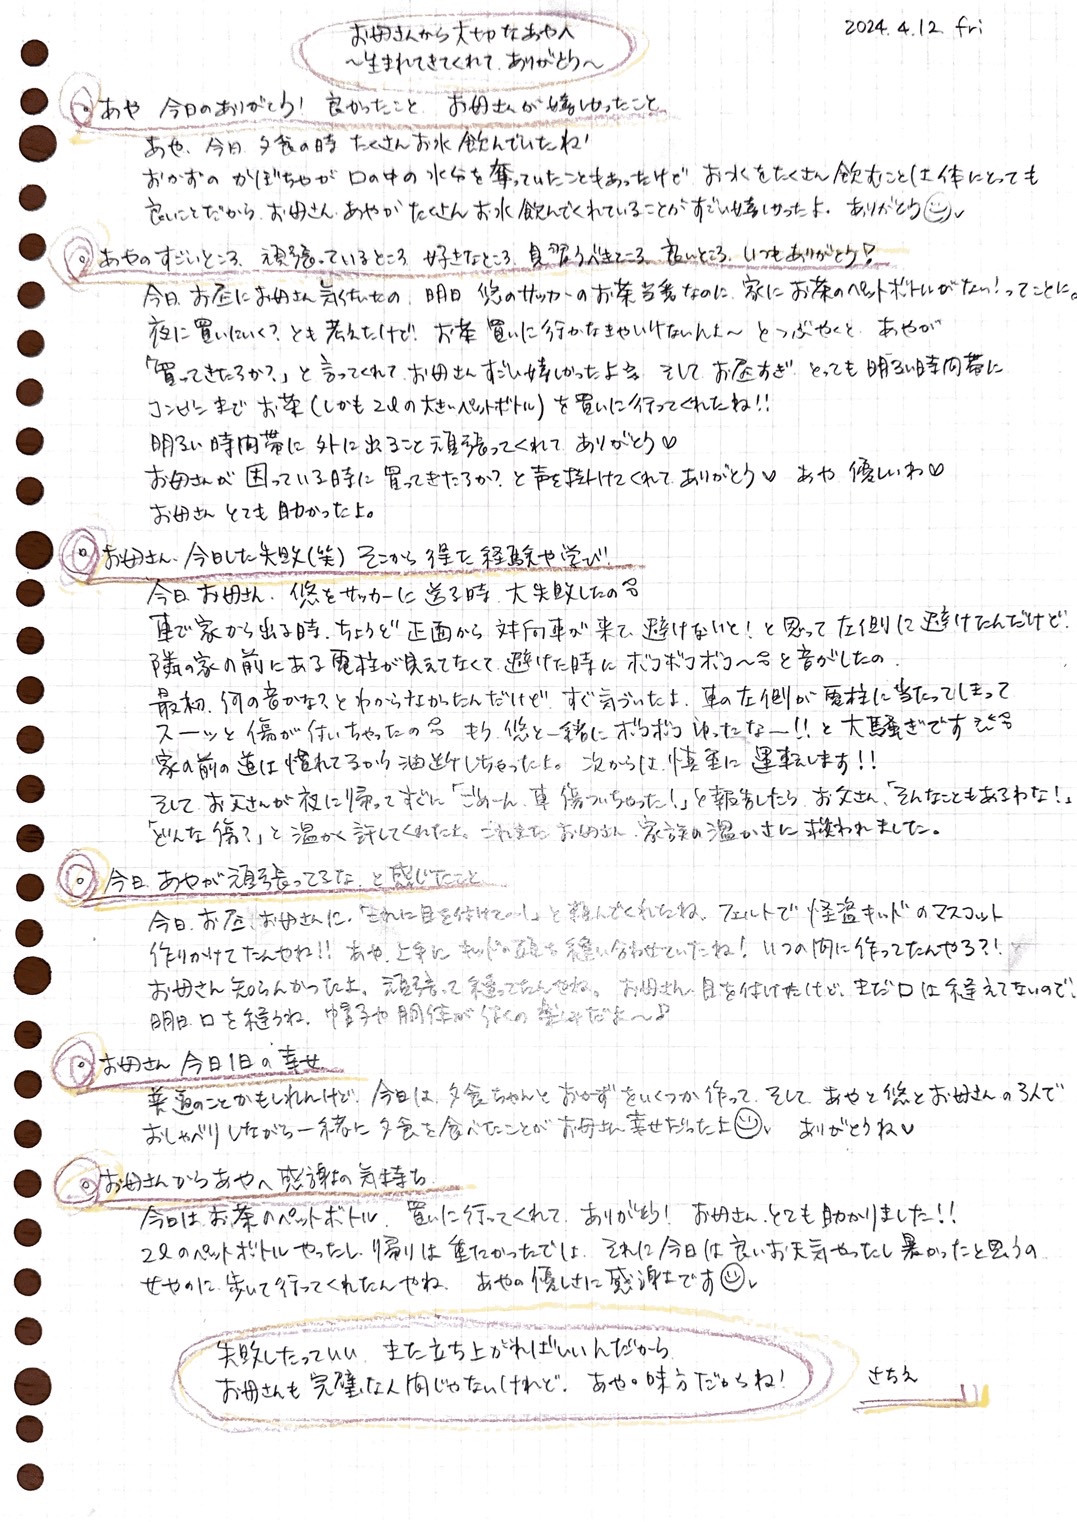 2024.4.12 fri
お母さんから大切なあやへ
～生まれてきてくれて、ありがとう～
あや 今日のありがとう! 良かったこと、お母さんが嬉しかったこと
あや、今日、夕食の時 たくさんお水 飲んでいたね!
おかずの かぼちゃが 口の中の水分を奪っていたこともあったけど、お水をたくさん飲むことは体にとっても
良いことだから、お母さん、あやが たくさん お水 飲んでくれていることが すごい嬉しかったよ。ありがとう☺
あやのすごいところ、頑張っているところ、好きなところ、見習うべきところ、良いところ、いつもありがとう!
今日、お昼にお母さん気付いたの、明日、悠のサッカーのお茶当番なのに、家にお茶のペットボトルがない!ってことに。
夜に買いにいく?とも考えたけど、お茶 買いに行かなきゃいけないんよ～とつぶやくと、あやが
「買ってきたろか?」と言ってくれて、お母さんすごい嬉しかったよ。そして、お昼すぎ、とっても明るい時間帯に
コンビニまで お茶(しかも2lの大きいペットボトル)を買いに行ってくれたね!!
明るい時間帯に外に出ること頑張ってくれて ありがとう♡
お母さんが 困っている時に 買ってきたろか?と声を掛けてくれて、ありがとう♡ あや 優しいわ♡
お母さん とても助かったよ。
お母さん、今日した失敗(笑) そこから得た経験や学び!
今日、お母さん、悠をサッカーに送る時、大失敗したの
車で家から出る時、ちょうど正面から 対向車が来て、避けないと!と思って左側に避けたんだけど、
隣の家の前にある電柱が見えてなくて、避けた時にボコボコボコ～と音がしたの、
最初、何の音かな?とわからなかったんだけど、すぐ気づいたよ、車の左側が電柱に当たってしまって
スーッと傷が付いちゃったの もう、悠と一緒にボコボコゆったな～!!と大騒ぎです
家の前の道は慣れてるから油断しちゃったよ。次からは、慎重に 運転します!!
そして、お父さんが夜に帰ってすぐに「ごめーん、車 傷ついちゃった!」と報告したら、お父さん、「そんなこともあるわな!」
「どんな傷?」と温かく許してくれたよ。これまた お母さん、家族の温かさに救われました。
今日、あやが頑張ってるな、と感じたこと
今日、お昼、お母さんに、「これに目を付けて～!」と頼んでくれたね、フェルトで 怪盗キッドのマスコット
作りかけてたんやね!! あや、上手に キッドの頭を縫い合わせていたね! いつの間に作ってたんやろ?!
お母さん 知らんかったよ、頑張って縫ってたんやね。お母さん、目を付けたけど、まだ口は縫えてないので、
明日、口を縫うね、帽子や胴体が付くの楽しみだよ～♪
お母さん 今日1日の幸せ
普通のことかもしれんけど、今日は、夕食ちゃんとおかずをいくつか作って、そして、あやと悠とお母さんの3人で
おしゃべりしながら一緒に夕食を食べたことが お母さん幸せだったよ☺ ありがとうね♡
お母さんからあやへ感謝の気持ち
今日は、お茶のペットボトル、買いに行ってくれて、ありがとう! お母さん、とても助かりました!!
2lのペットボトルやったし、帰りは重たかったでしょ、それに今日は良いお天気やったし暑かったと思うの
せやのに、歩いて行ってくれたんやね、あやの優しさに感謝です☺
失敗したっていい、また立ち上がればいいんだから
お母さんも完璧な人間じゃないけれど、あやの味方だからね!
さちえ